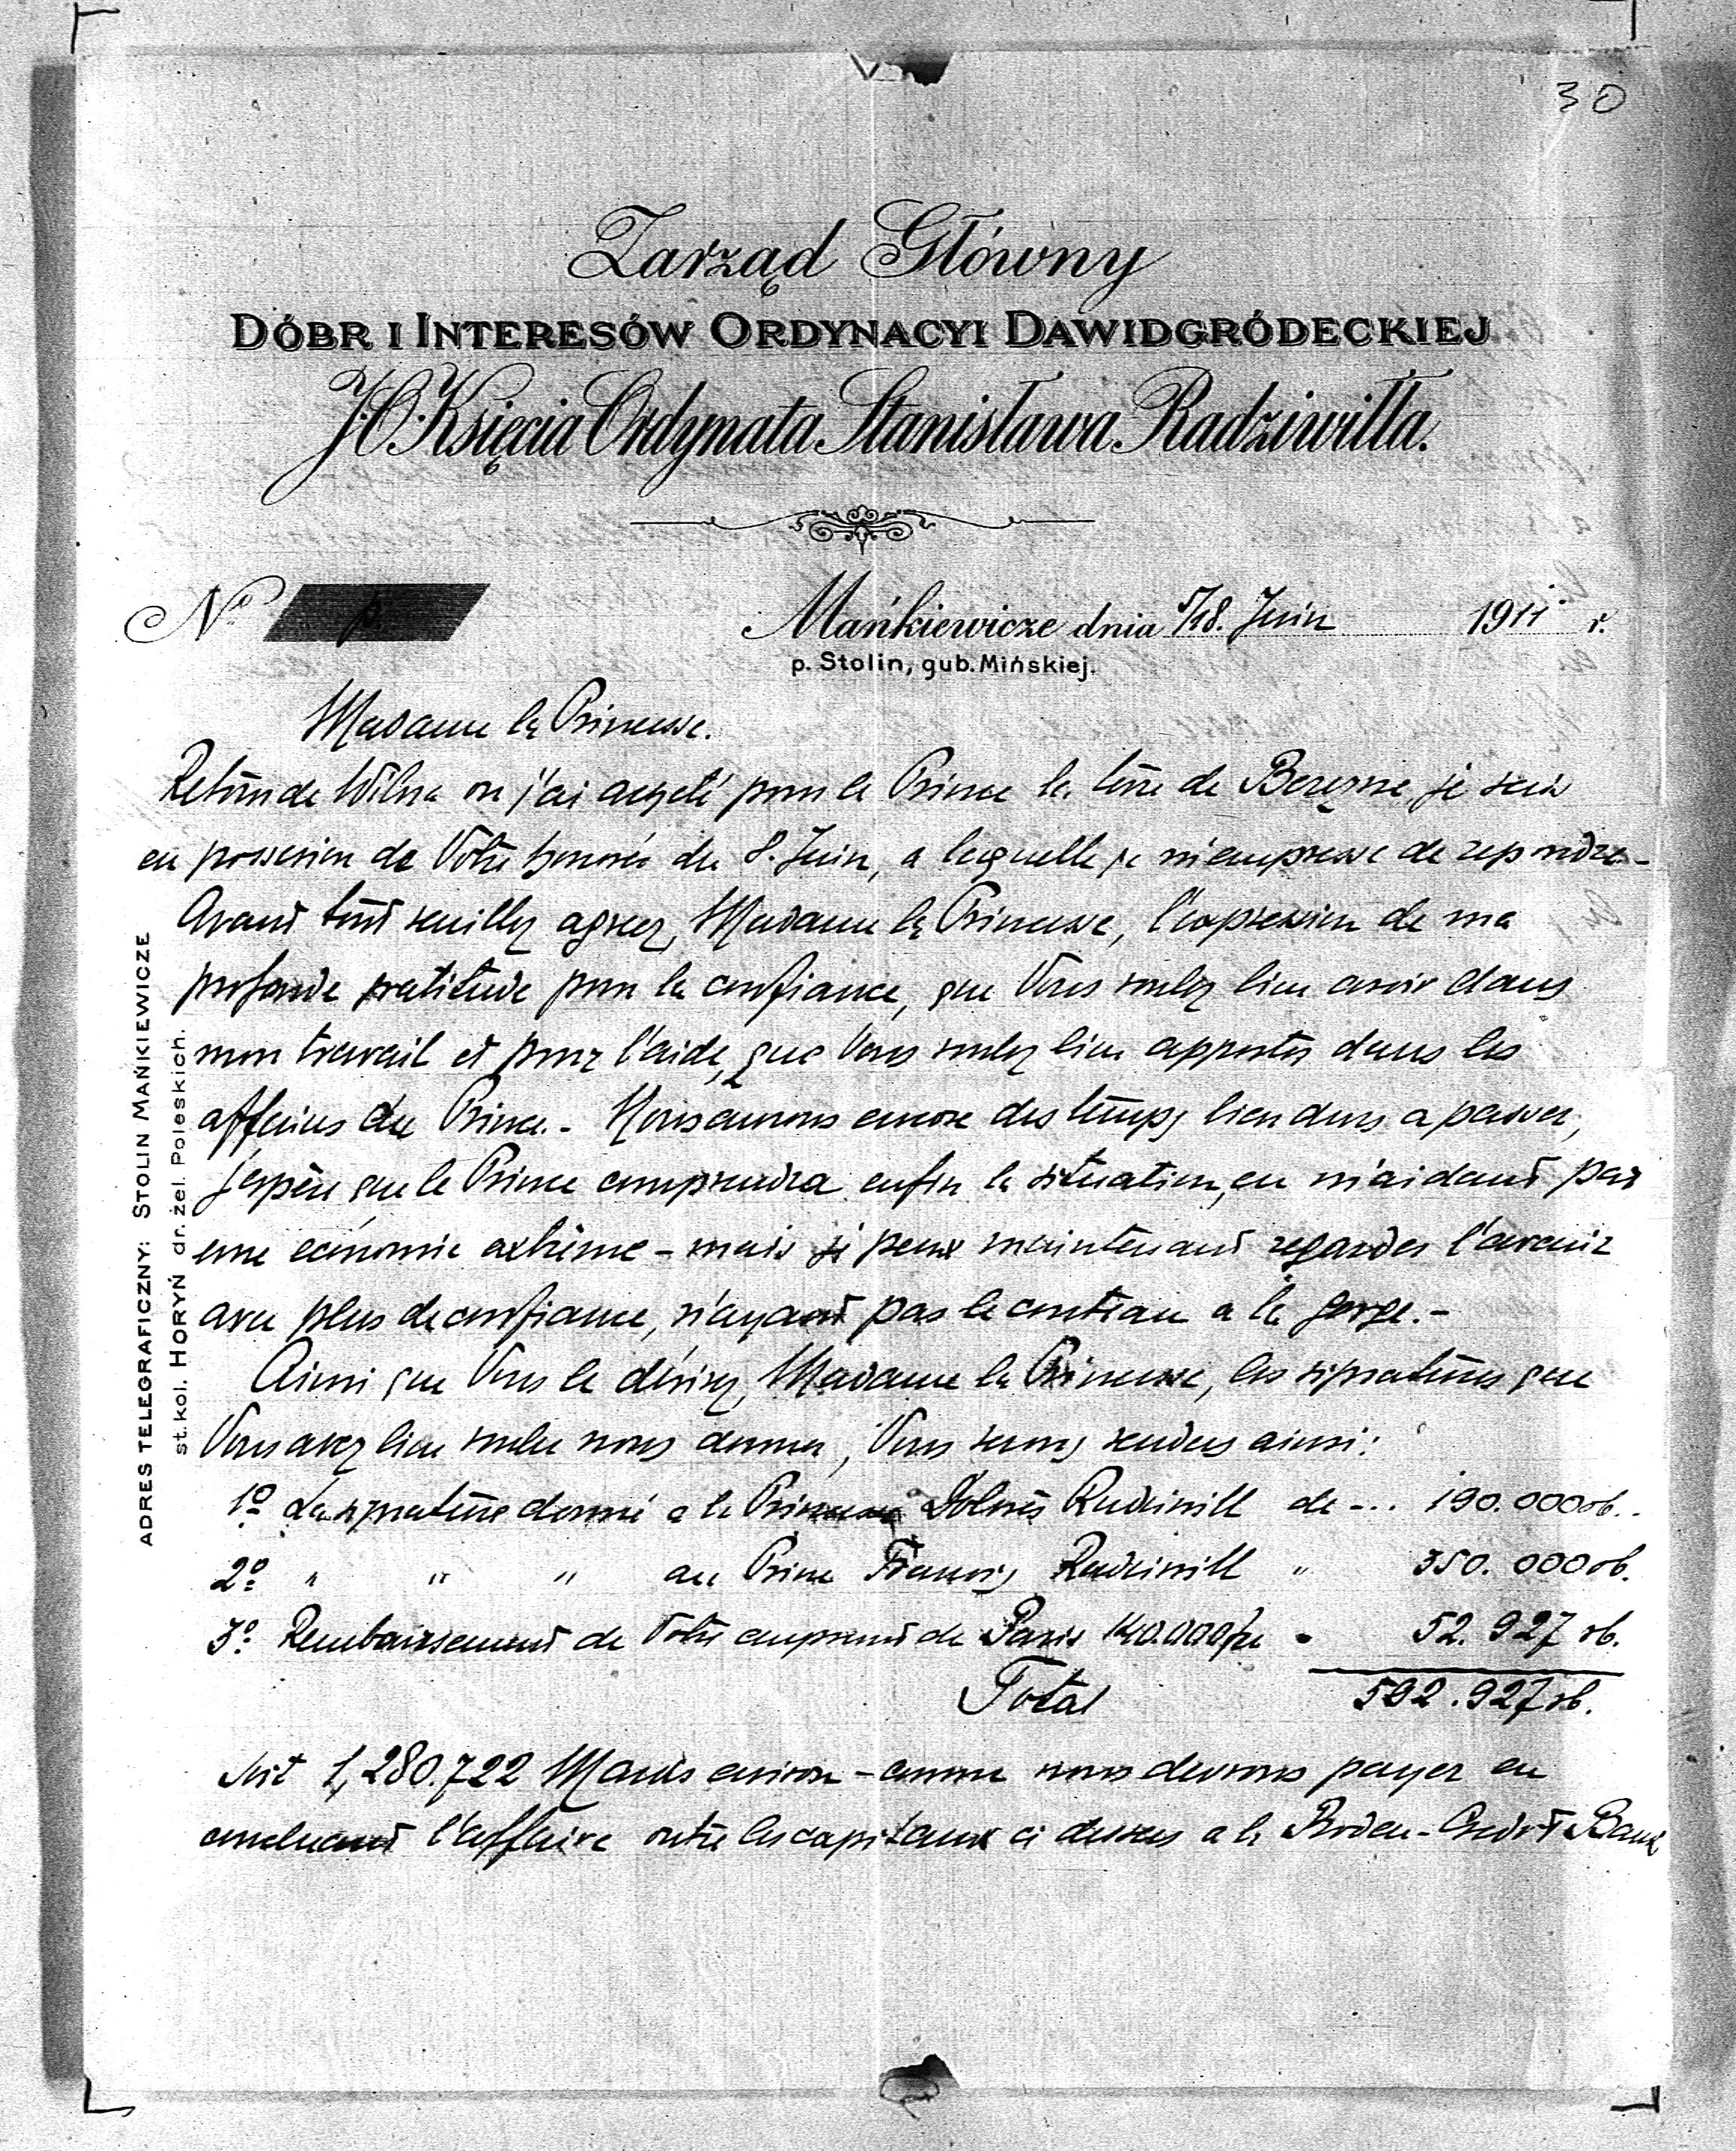 30
Zarząd Główny
DÓBR I INTERESÓW ORDYNACYI DAWIDGRÓDECKIEJ
J.O. Księcia Ordynata Stanisława Radziwiłła.
No p.
Mańkiewicze dnia 5/18. Juin 1911 r.
p. Stolin, gub. Mińskiej.
ADRES TELEGRAFICZNY: STOLIN MAŃKIEWICZE
st. kol. HORYŃ dr. żel. Poleskich.
Madame la Princesse.
Retour de Wilna ou j'ai acheté pour le Prince la terre de je suis
en possesion de Votre honorée du 8. Juin, a laquelle je m'empresse de repondre.-
Avant tout veuillez agreez, Madame la Princesse, l'expression de ma
profonde gratitude pour la confiance, que Vous voulez bien avoir dans
mon travail et pour l'aide, que Vous voulez bien apporter dans les
affaires du Prince.- Nous aurons encore des temps bien durs a passer,
j'espère que le Prince comprendra enfin la situation, en m'aidant par
une economie extrême - mais je peux maintenant regarder l'avenir
avec plus de confiance, n'ayant pas le couteau a la gorge.-
Ainsi que Vous le désirez, Madame la Princesse, les signatures que
Vous avez bien voulu nous donner, Vous seront rendues ainsi:
1o La signature donné a la Princesse Dolorès Radziwill de -... 190.000 rb..
2o " " " au Prince Francois Radziwill " 350.000 rb.
3o Remboursement de Votre emprunt de Paris 140.000 fr 52.927 rb.
Total 592.927 rb.
soit 1,280.722 Marks environ - comme nous devrons payer en
concluant l'affaire outre les capitaux ci dessus a la Boden-Credit Bank